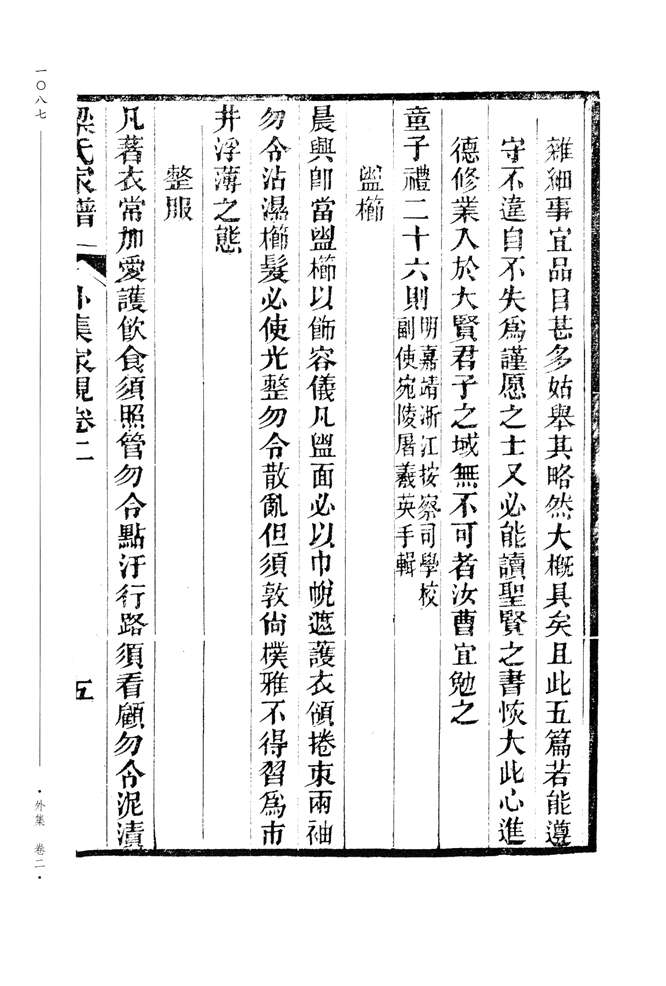 雜細事宜品目甚多姑舉其略然大概具矣且此五篇若能遵
守不違自不失爲謹愿之士又必能讀聖賢之書恢大此心進
德修業入於大賢君子之域無不可者汝曹宜勉之
童子禮二十六則明嘉靖浙江按察司學校
副使宛陵屠羲英手輯
盥櫛
晨興卽當盥櫛以飾容儀凡盥面必以巾帨遮護衣領捲束兩袖
勿令沾濕櫛髮必使光整勿令散亂但須敦尙樸雅不得習爲市
井浮薄之態
整服
凡著衣常加愛護飮食須照管勿令點汙行路須看顧勿令泥漬
梁氏家譜 外集家規卷二 五
一〇八七
·外集 卷二·